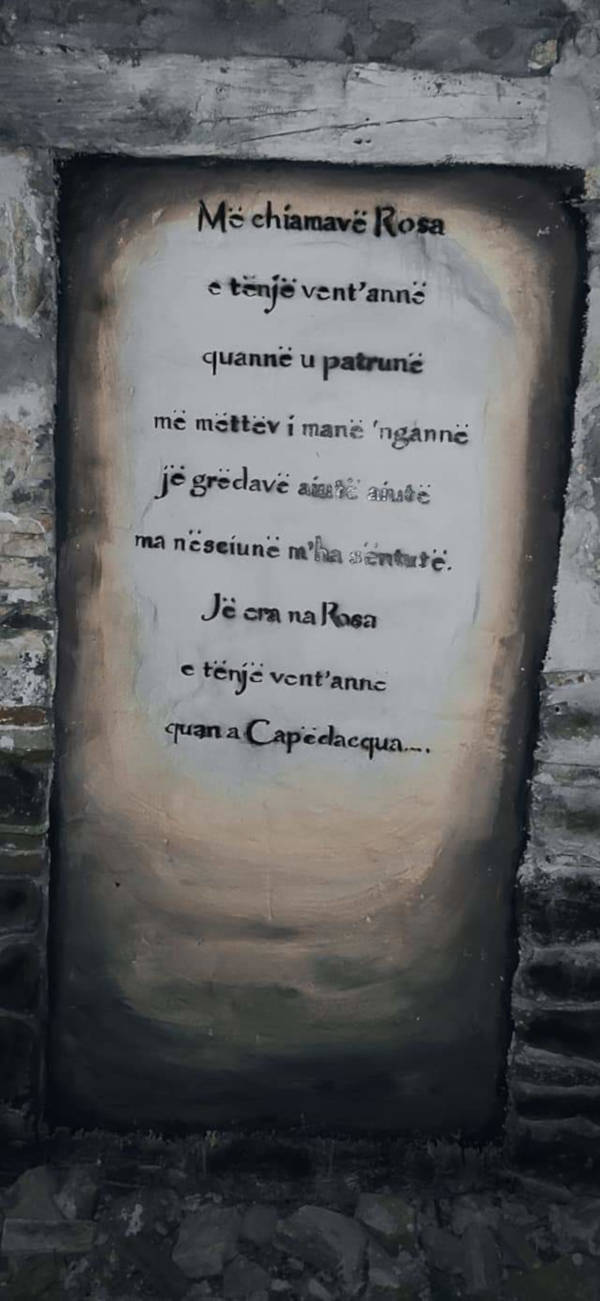 Më chiamavë Rosa
e tënjë vent'annë
quannë u patrunë
më mëttëv i manë 'ngannë
jë grëdavë aiutë aiutë
ma nësciunë m'ha sëntutë.
Jë era na Rosa
e tënjë vent'anne
quan a Capëdacqua....